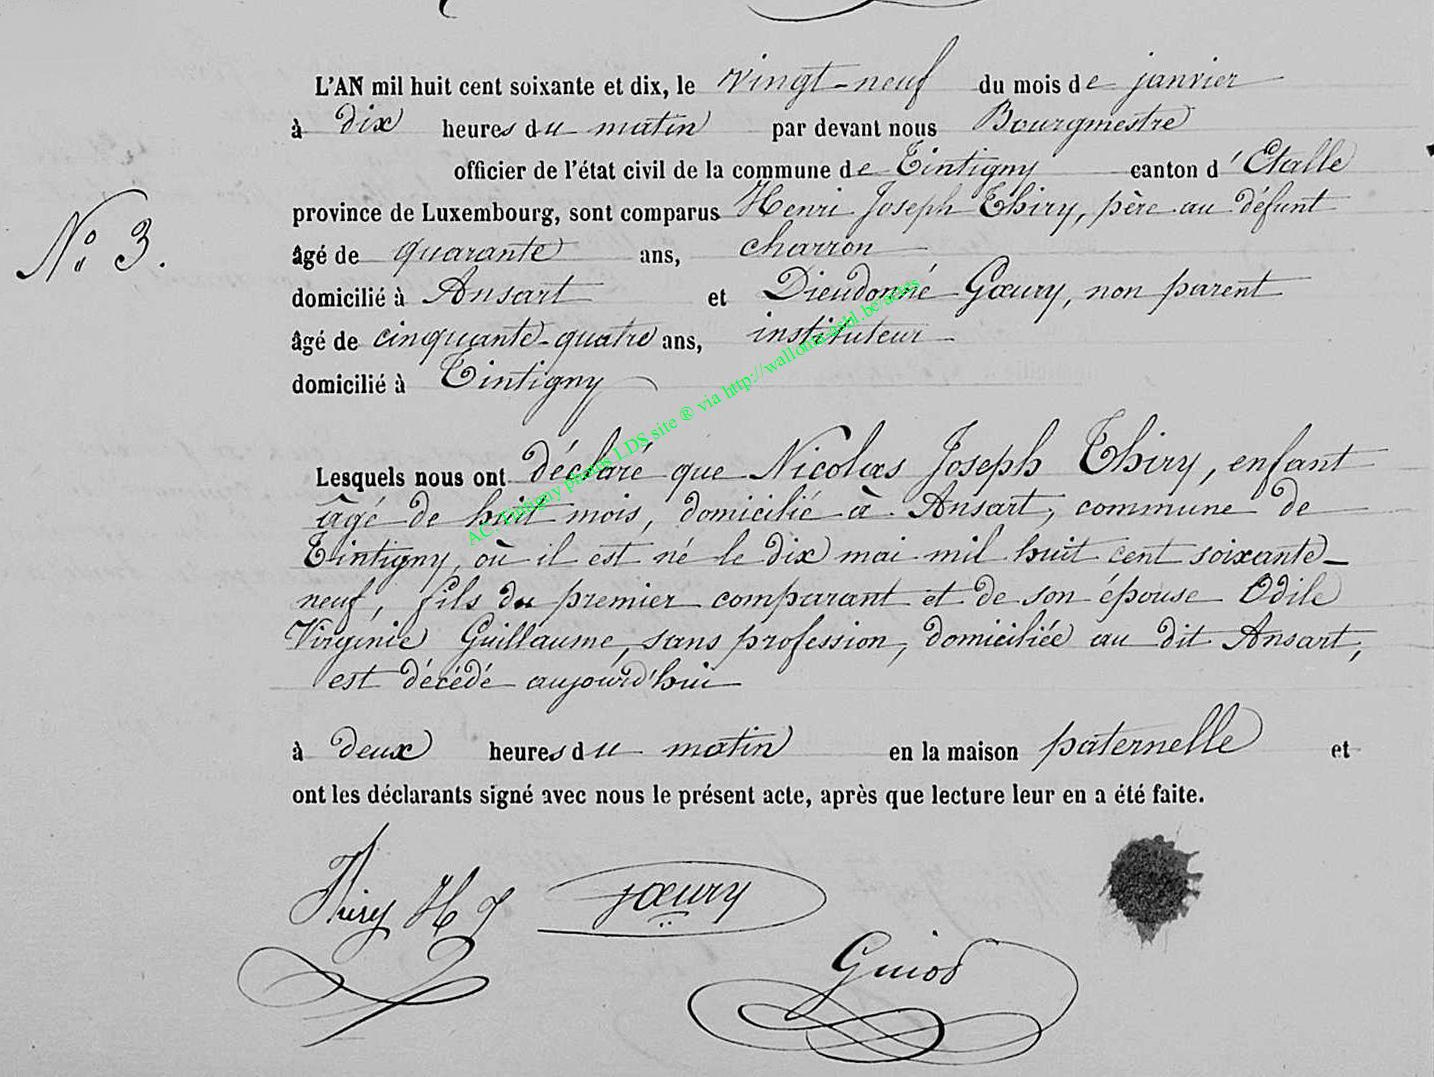 L'AN mil huit cent soixante et dix, le vingt-neuf du mois de janvier
à dix heures du matin par devant nous Bourgmestre
officier de l'état civil de la commune de Tintigny canton d'Etalle
province de Luxembourg, sont comparus Henri Joseph Thiry, père au défunt
N° 3.
âgé de quarante ans, charron
domicilié à Ansart et Dieudonné Gœury, non parent
âgé de cinquante-quatre ans, instituteur
domicilié à Tintigny
AC. Tintigny photos LDS site ® via http://wallonia-asbl.be/actes
Lesquels nous ont déclaré que Nicolas Joseph Thiry, enfant
âgé de huit mois, domicilié à Ansart, commune de
Tintigny, où il est né le dix mai mil huit cent soixante-
neuf, fils du premier comparant et de son épouse Odile
Virginie Guillaume, sans profession, domiciliée au dit Ansart,
est décédé aujourd'hui
à deux heures du matin en la maison paternelle et
ont les déclarants signé avec nous le présent acte, après que lecture leur en a été faite.
Thiry H J Gœury
Guiot